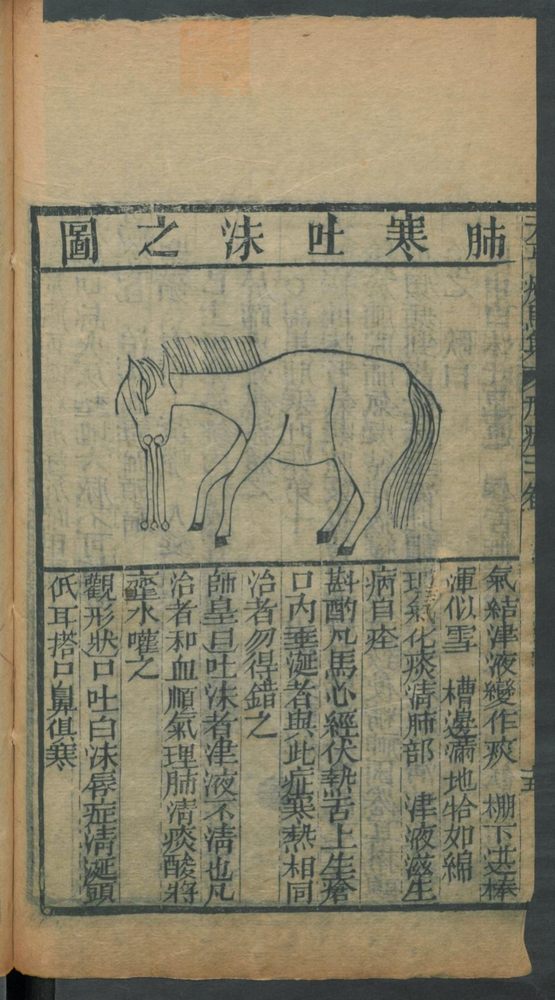 肺寒吐沫之圖
氣結津液變作痰 棚下洪棒
渾似雪 槽邊滿地恰如綿
理氣化痰清肺部 津液滋生
病自痊
斟酌凡馬心經伏熱舌上生瘡
口內垂涎者與此症寒熱相同
治者勿得錯之
師皇曰吐沫者津液不清也凡
治者和血順氣理肺清痰酸漿
虀水嚾之
觀形狀口吐白沫唇症清涎頭
低耳搭口鼻俱寒